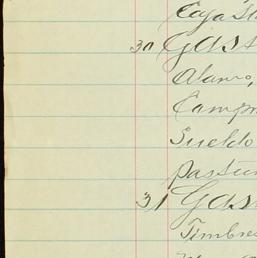 Caja
30 Gast
Alamo,
Campr
Sueldo
pastur
31 Gas
Timbre